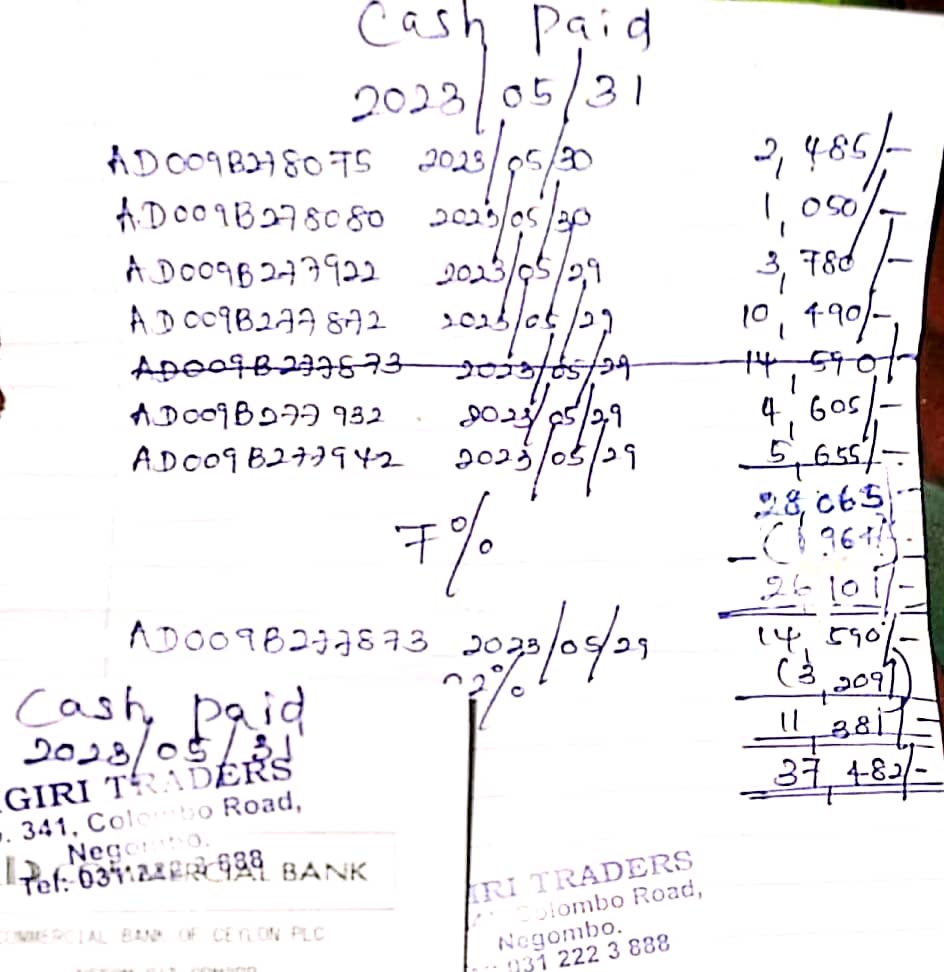 Cash Paid
2023/05/31
AD009B278075 2023/05/30 2,485/-
AD009B278080 2023/05/30 1,050/-
AD009B277922 2023/05/29 3,780/-
AD009B277872 2023/05/29 10,490/-
AD009B277873 2023/05/29 14,590/-
AD009B277932 2023/05/29 4,605/-
AD009B277942 2023/05/29 5,655/-
28,065/-
7% (1,964/-)
26,101/-
AD009B277873 2023/05/29 14,590/-
22% (3,209)
11,381/-
37,482/-
Cash paid
2023/05/31
GIRI TRADERS
. 341, Colombo Road,
Negombo.
Tel: 031 222 3 888
COMMERCIAL BANK
COMMERCIAL BANK OF CEYLON PLC
IRI TRADERS
Colombo Road,
Negombo.
031 222 3 888